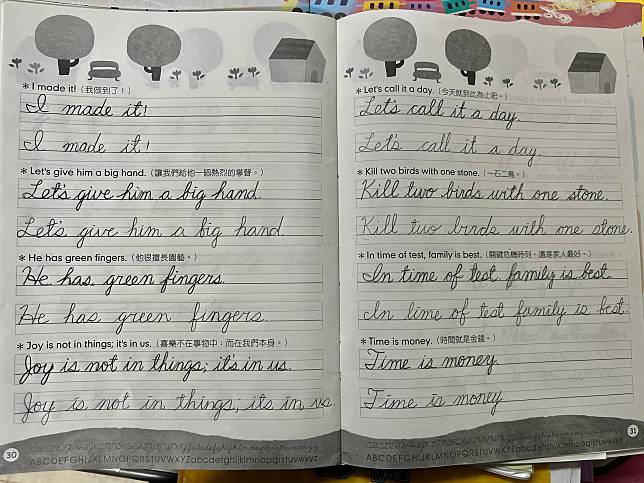 * I made it! (我做到了！)
I made it!
I made it!
* Let's give him a big hand. (讓我們給他一個熱烈的掌聲。)
Let's give him a big hand.
Let's give him a big hand.
* He has green fingers. (他很擅長園藝。)
He has green fingers.
He has green fingers.
* Joy is not in things; it's in us. (喜樂不在事物中；而在我們本身。)
Joy is not in things; it's in us.
Joy is not in things; its in us.
ABCDEFGHIJKLMNOPQRSTUVWXYZabcdefghijklmnopqrstuvwxyz
ABCDEFGHIJKLMNOPQRSTUVWXYZabcdefghijklmnopqrstuvwxyz
30
* Let's call it a day. (今天就到此為止吧。)
Let's call it a day.
Let's call it a day.
* Kill two birds with one stone. (一石二鳥。)
Kill two birds with one stone.
Kill two birds with one stone.
* In time of test, family is best. (關鍵危機時刻，還是家人最好。)
In time of test family is best
In time of test family is best.
* Time is money. (時間就是金錢。)
Time is money.
Time is money
ABCDEFGHIJKLMNOPQRSTUVWXYZabcdefghijklmnopqrstuvwxyz
ABCDEFGHIJKLMNOPQRSTUVWXYZabcdefghijklmnopqrstuvwxyz
31